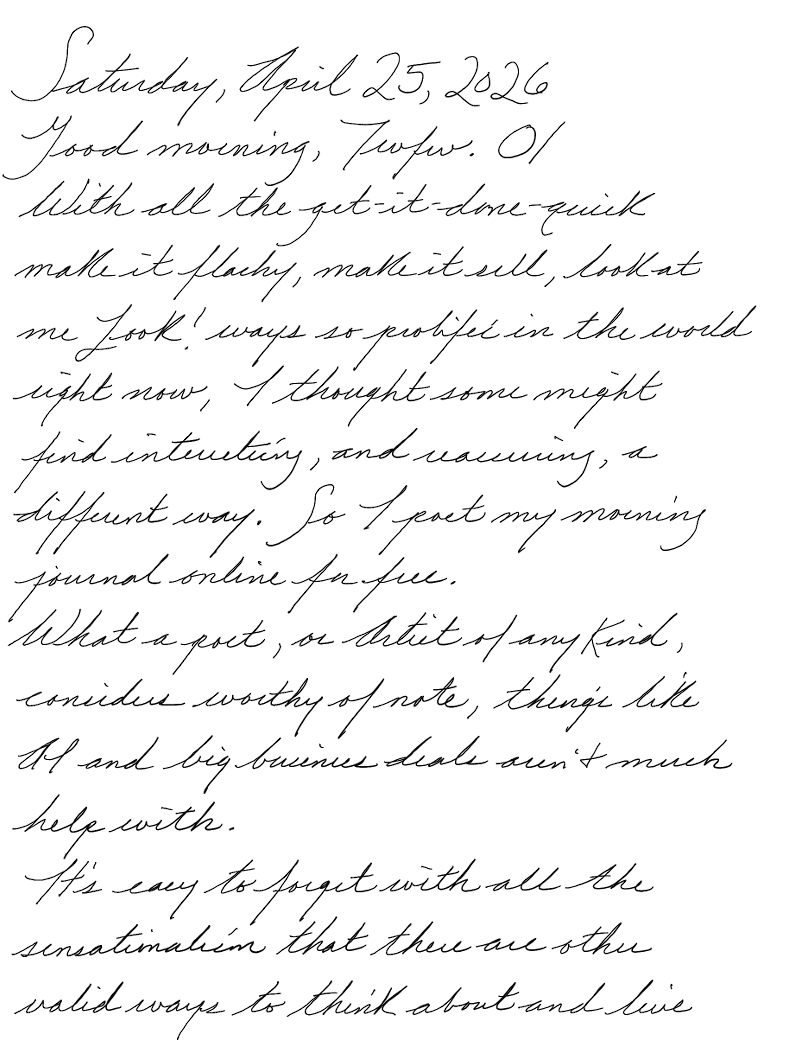 Saturday, April 25, 2026
Good morning, Twfw. 01
With all the get-it-done-quick
make it flashy, make it sell, look at
me Look! ways so prolific in the world
right now, I thought some might
find interesting, and reassuring, a
different way. So I post my morning
journal online for free.
What a poet, or Artist of any Kind,
considers worthy of note, things like
AI and big business deals aren't much
help with.
It's easy to forget with all the
sensationalism that there are other
valid ways to think about and live